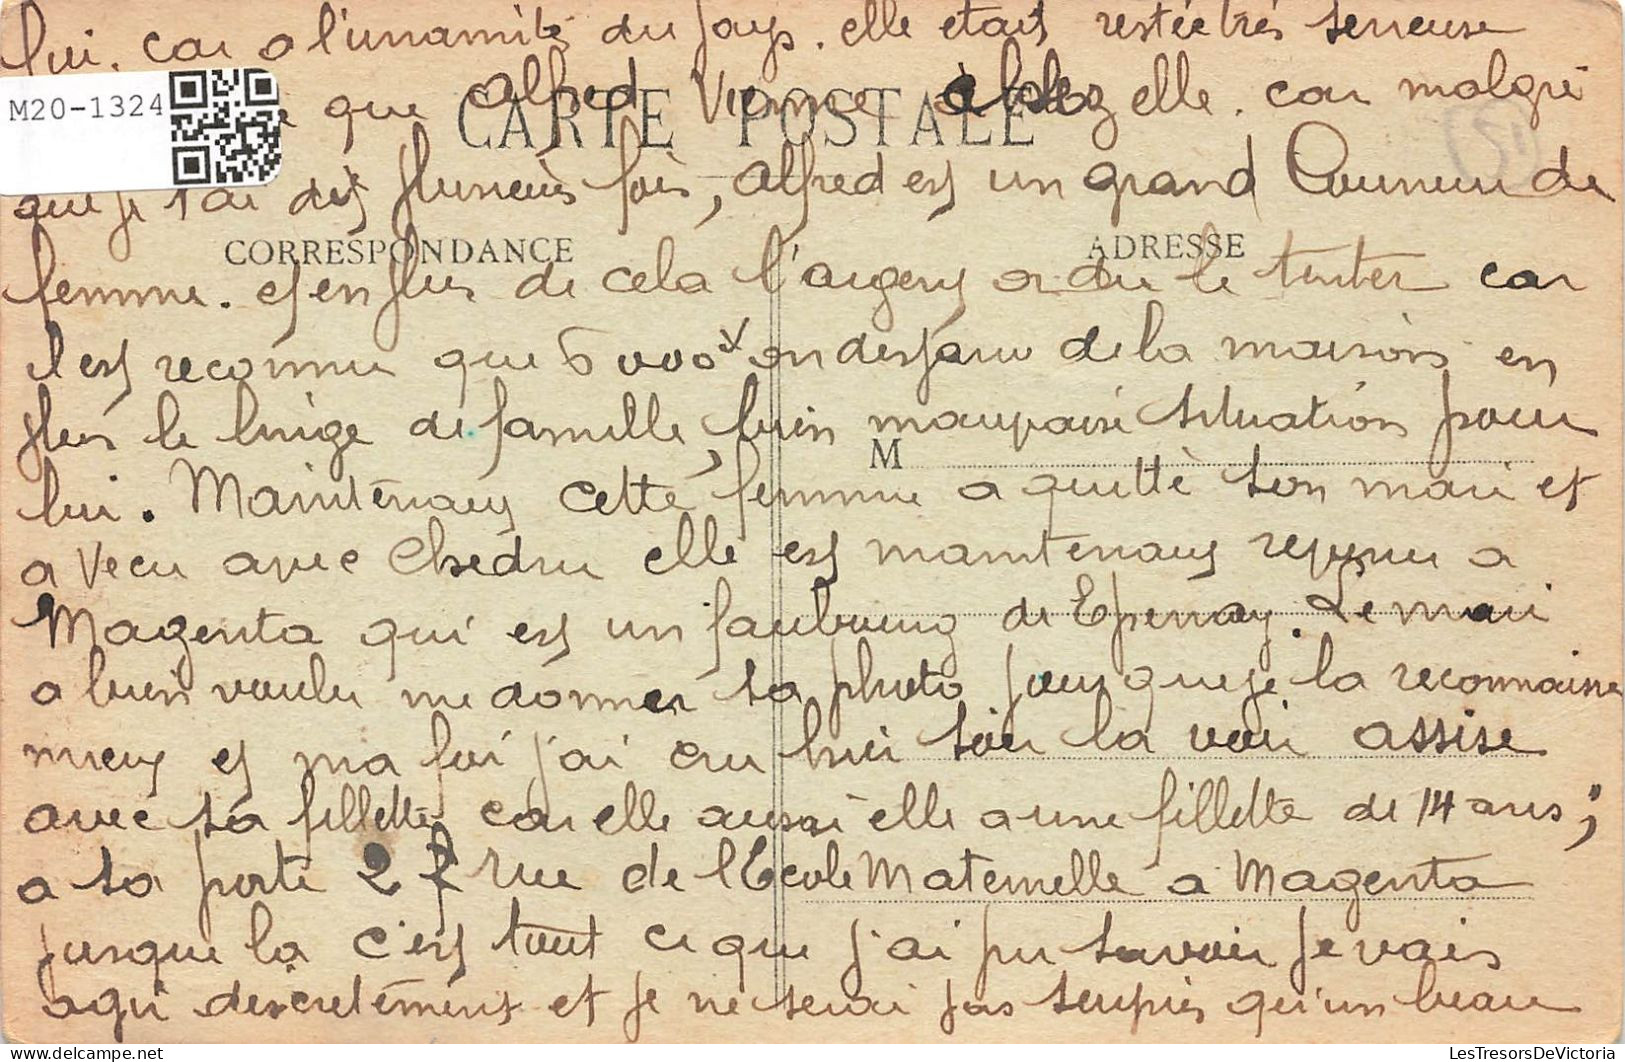 lui. car a l'unamité du pays. elle etait restée trés serieuse
M20-1324
que Alfred Vienne chez elle. car malgré
CARTE POSTALE
que je l'ai dit plusieurs fois, Alfred est un grand Coureur de
CORRESPONDANCE ADRESSE
femme. et en plus de cela l'argent a du le tenter car
il est reconnu que 6000 on disparu de la maison en
plus le linge de famille, bien mauvaise situation pour
M
lui. Maintenant cette femme a quitté son mari et
a vecu avec Chedru elle est maintenant revenu a
Magenta qui est un faubourg de Epernay. Le mari
a bien voulu me donner sa photo pour que je la reconnaisse
mieux et ma foi j'ai cru bien soir la voir assise
avec sa fillette car elle aussi elle a une fillette de 14 ans;
a sa porte 27 rue de l'Ecole Maternelle a Magenta
jusque la c'est tout ce que j'ai pu savoir je vais
agir discretement et je ne serai pas surpris qu'un beau
LesTresorsDeVictoria